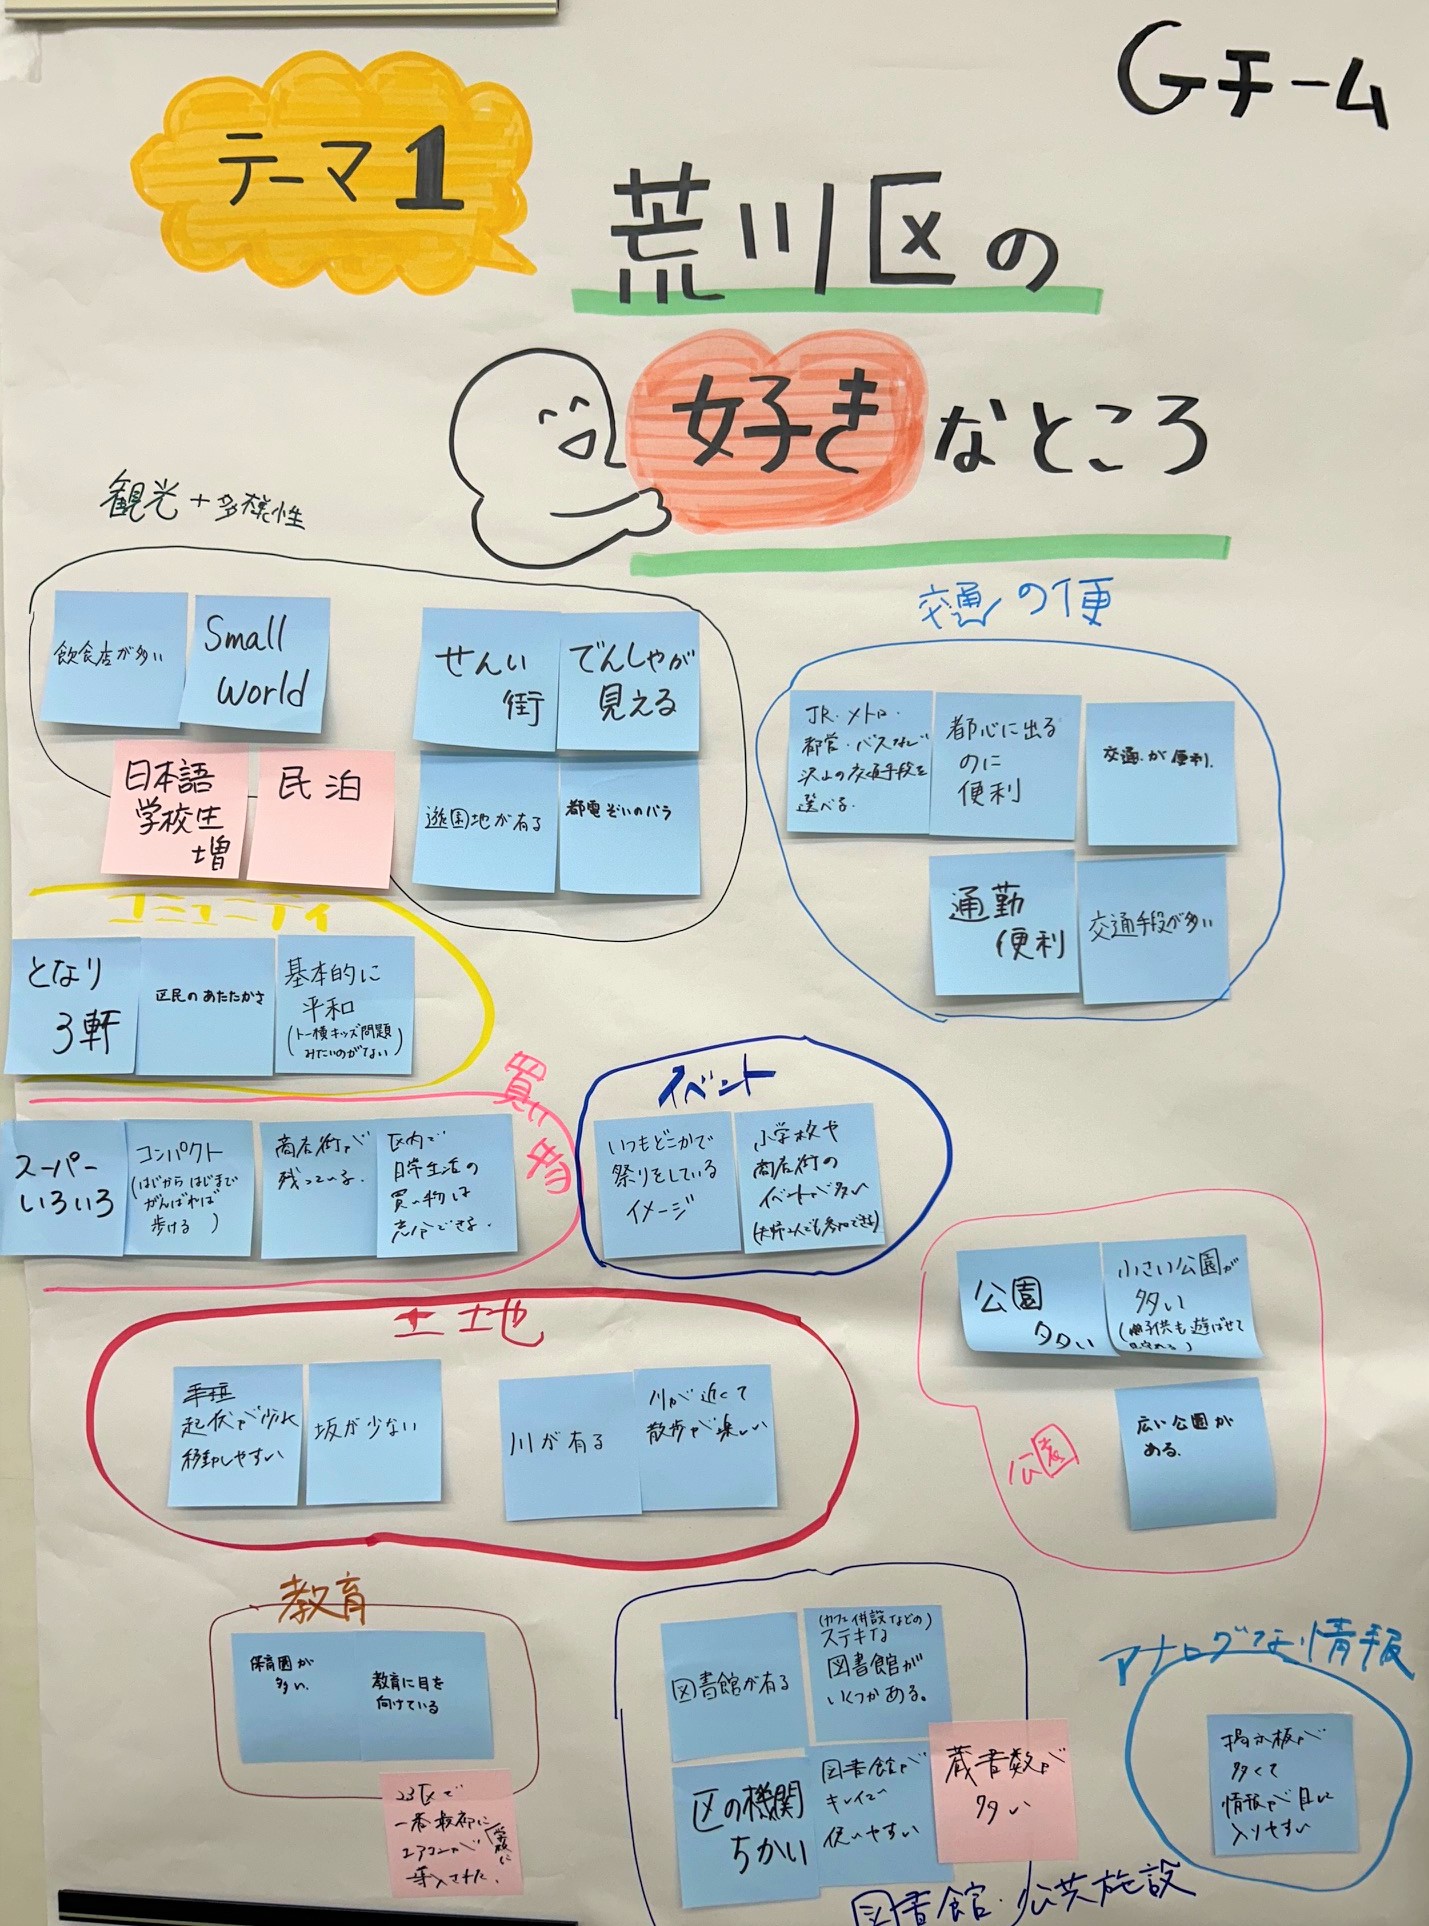 Gチーム
テーマ1
荒川区の
好きなところ
観光+多様性
飲食店が多い
Small
World
せんい
街
でんしゃが
見える
日本語
学校生
増
民泊
遊園地が有る
都電ぞいのバラ
交通の便
JR・メトロ・
都営・バスなど
沢山の交通手段を
選べる。
都心に出る
のに
便利
交通が便利.
通勤
便利
交通手段が多い
コミュニティ
となり
3軒
区民のあたたかさ
基本的に
平和
(トー横キッズ問題
みたいのがない)
買い場
スーパー
いろいろ
コンパクト
(はじからはじまで
がんばれば
歩ける)
商店街が
残っている。
区内で
日常生活の
買い物は
充分できる.
イベント
いつもどこかで
祭りをしている
イメージ
小学校や
商店街の
イベントが多い
(夫婦2人でも参加できる)
土地
起伏が少なく
移動しやすい
坂が少ない
川が有る
川が近くて
散歩が楽しい
公園
多い
小さい公園が
多い
(子供も遊ばせて
広い公園が
ある.
公園
教育
保育園が
多い.
教育に目を
向けている
23区で
一番最初に
学校に
エアコンが
導入された.
図書館が有る
(カフェ併設などの)
ステキな
図書館が
いくつかある。
区の機関
ちかい
図書館が
キレイで
使いやすい
蔵書数が
多い
図書館・公共施設
アナログな情報
掲示板が
多くて
情報が目に
入りやすい